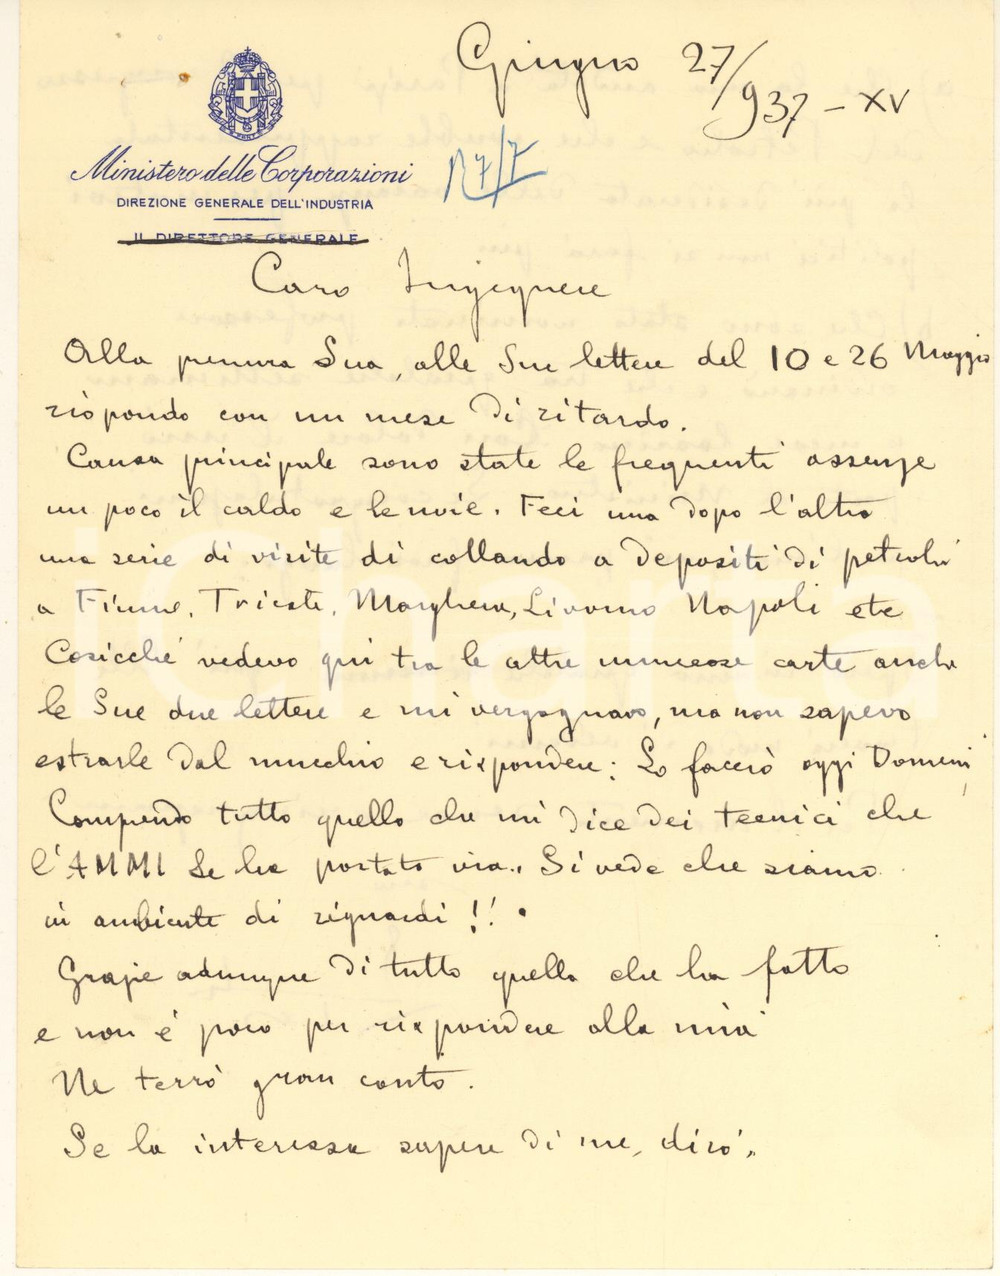 Giugno 27/937 - XV
Ministero delle Corporazioni
DIREZIONE GENERALE DELL'INDUSTRIA
IL DIRETTORE GENERALE
R 7/7
Caro Ingegnere
Alla premura Sua, alle Sue lettere del 10 e 26 Maggio
rispondo con un mese di ritardo.
Causa principale sono state le frequenti assenze
un poco il caldo e le noie. Feci una dopo l'altra
una serie di visite di collaudo a depositi di petroli
a Fiume, Trieste, Marghera, Livorno Napoli etc
Cosicché vedevo qui tra le altre numerose carte anche
le Sue due lettere e mi vergognavo, ma non sapevo
estrarle dal mucchio e rispondere: Lo faccio oggi Domenica
Comprendo tutto quello che mi dice dei tecnici che
l'AMMI Le ha portato via. Si vede che siamo
in ambiente di riguardi !!.
Grazie adunque di tutto quello che ha fatto
e non è poco per rispondere alla mia
Ne terrò gran conto.
Se la interessa sapere di me, dirò.
iCharta